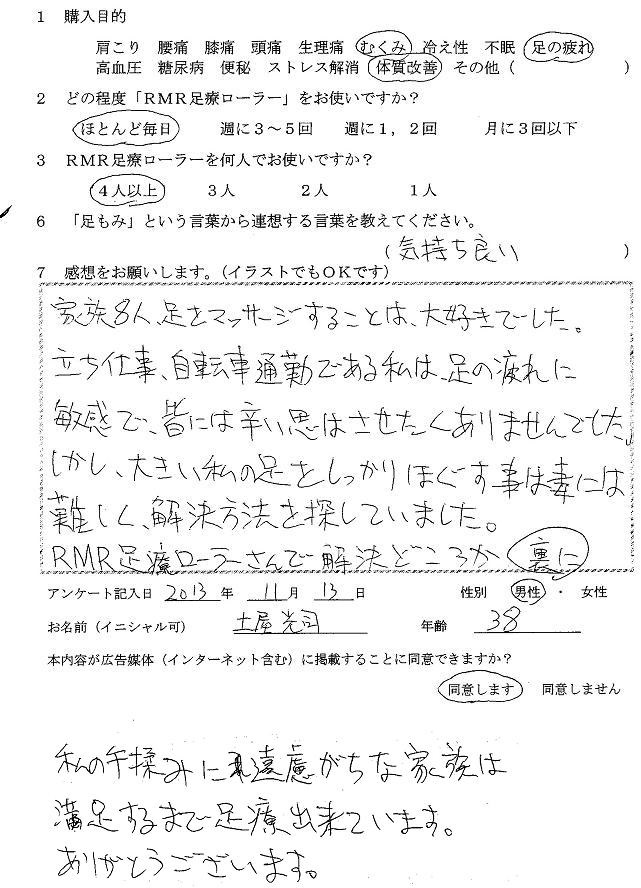 1 購入目的
肩こり 腰痛 膝痛 頭痛 生理痛 むくみ 冷え性 不眠 足の疲れ
高血圧 糖尿病 便秘 ストレス解消 体質改善 その他( )
2 どの程度「RMR足療ローラー」をお使いですか?
ほとんど毎日 週に3~5回 週に1,2回 月に3回以下
3 RMR足療ローラーを何人でお使いですか?
4人以上 3人 2人 1人
6 「足もみ」という言葉から連想する言葉を教えてください。
(気持ち良い )
7 感想をお願いします。(イラストでもOKです)
家族8人、足をマッサージすることは、大好きでした。
立ち仕事、自転車通勤である私は、足の疲れに
敏感で、皆には辛い思はさせたくありませんでした。
しかし、大きい私の足をしっかりほぐす事は妻には
難しく、解決方法を探していました。
RMR足療ローラーさんで解決どころか 裏に
アンケート記入日 2013 年 11 月 13 日 性別 男性 ・ 女性
お名前(イニシャル可) 土屋光司 年齢 38
本内容が広告媒体(インターネット含む)に掲載することに同意できますか?
同意します 同意しません
私の手揉みに遠慮がちな家族は
満足するまで足療出来ています。
ありがとうございます。